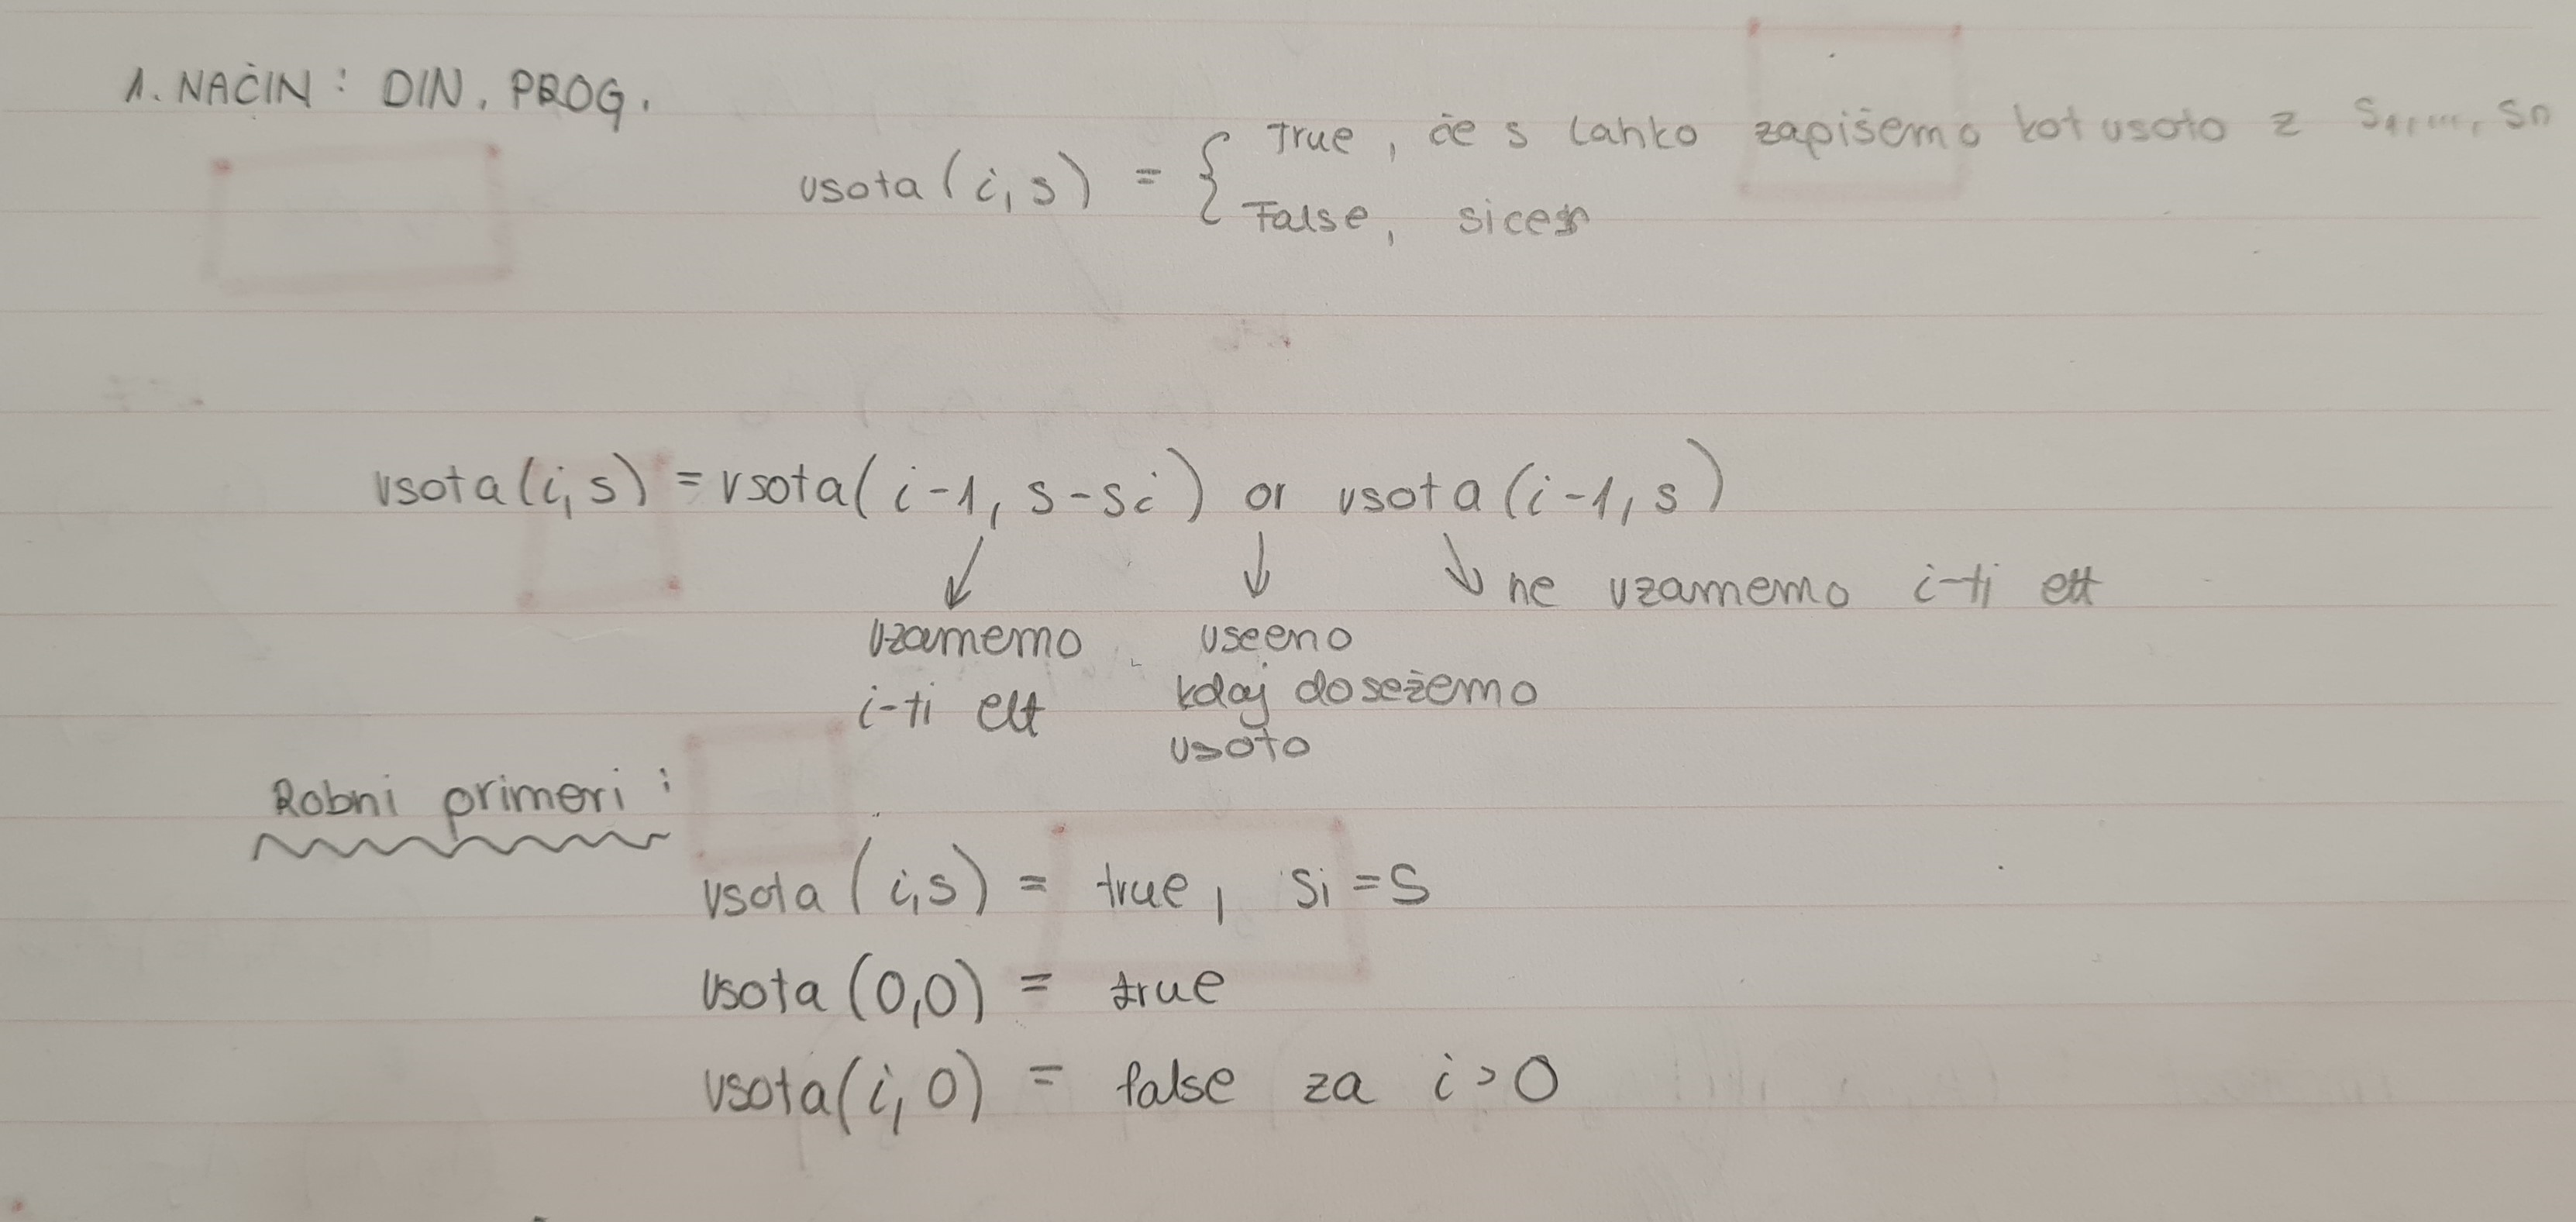 1. NAČIN : DIN. PROG.
vsota (i, s) = { True, če s lahko zapišemo kot vsoto z s1, ..., sn
False, sicer
vsota (i, s) = vsota( i-1, s-si) or vsota (i-1, s)
↙ ↓ ↘ ne vzamemo i-ti elt
vzamemo vseeno
i-ti elt kdaj dosežemo
vsoto
Robni primeri :
vsota (i,s) = true, si = s
vsota (0,0) = true
vsota (i, 0) = false za i > 0